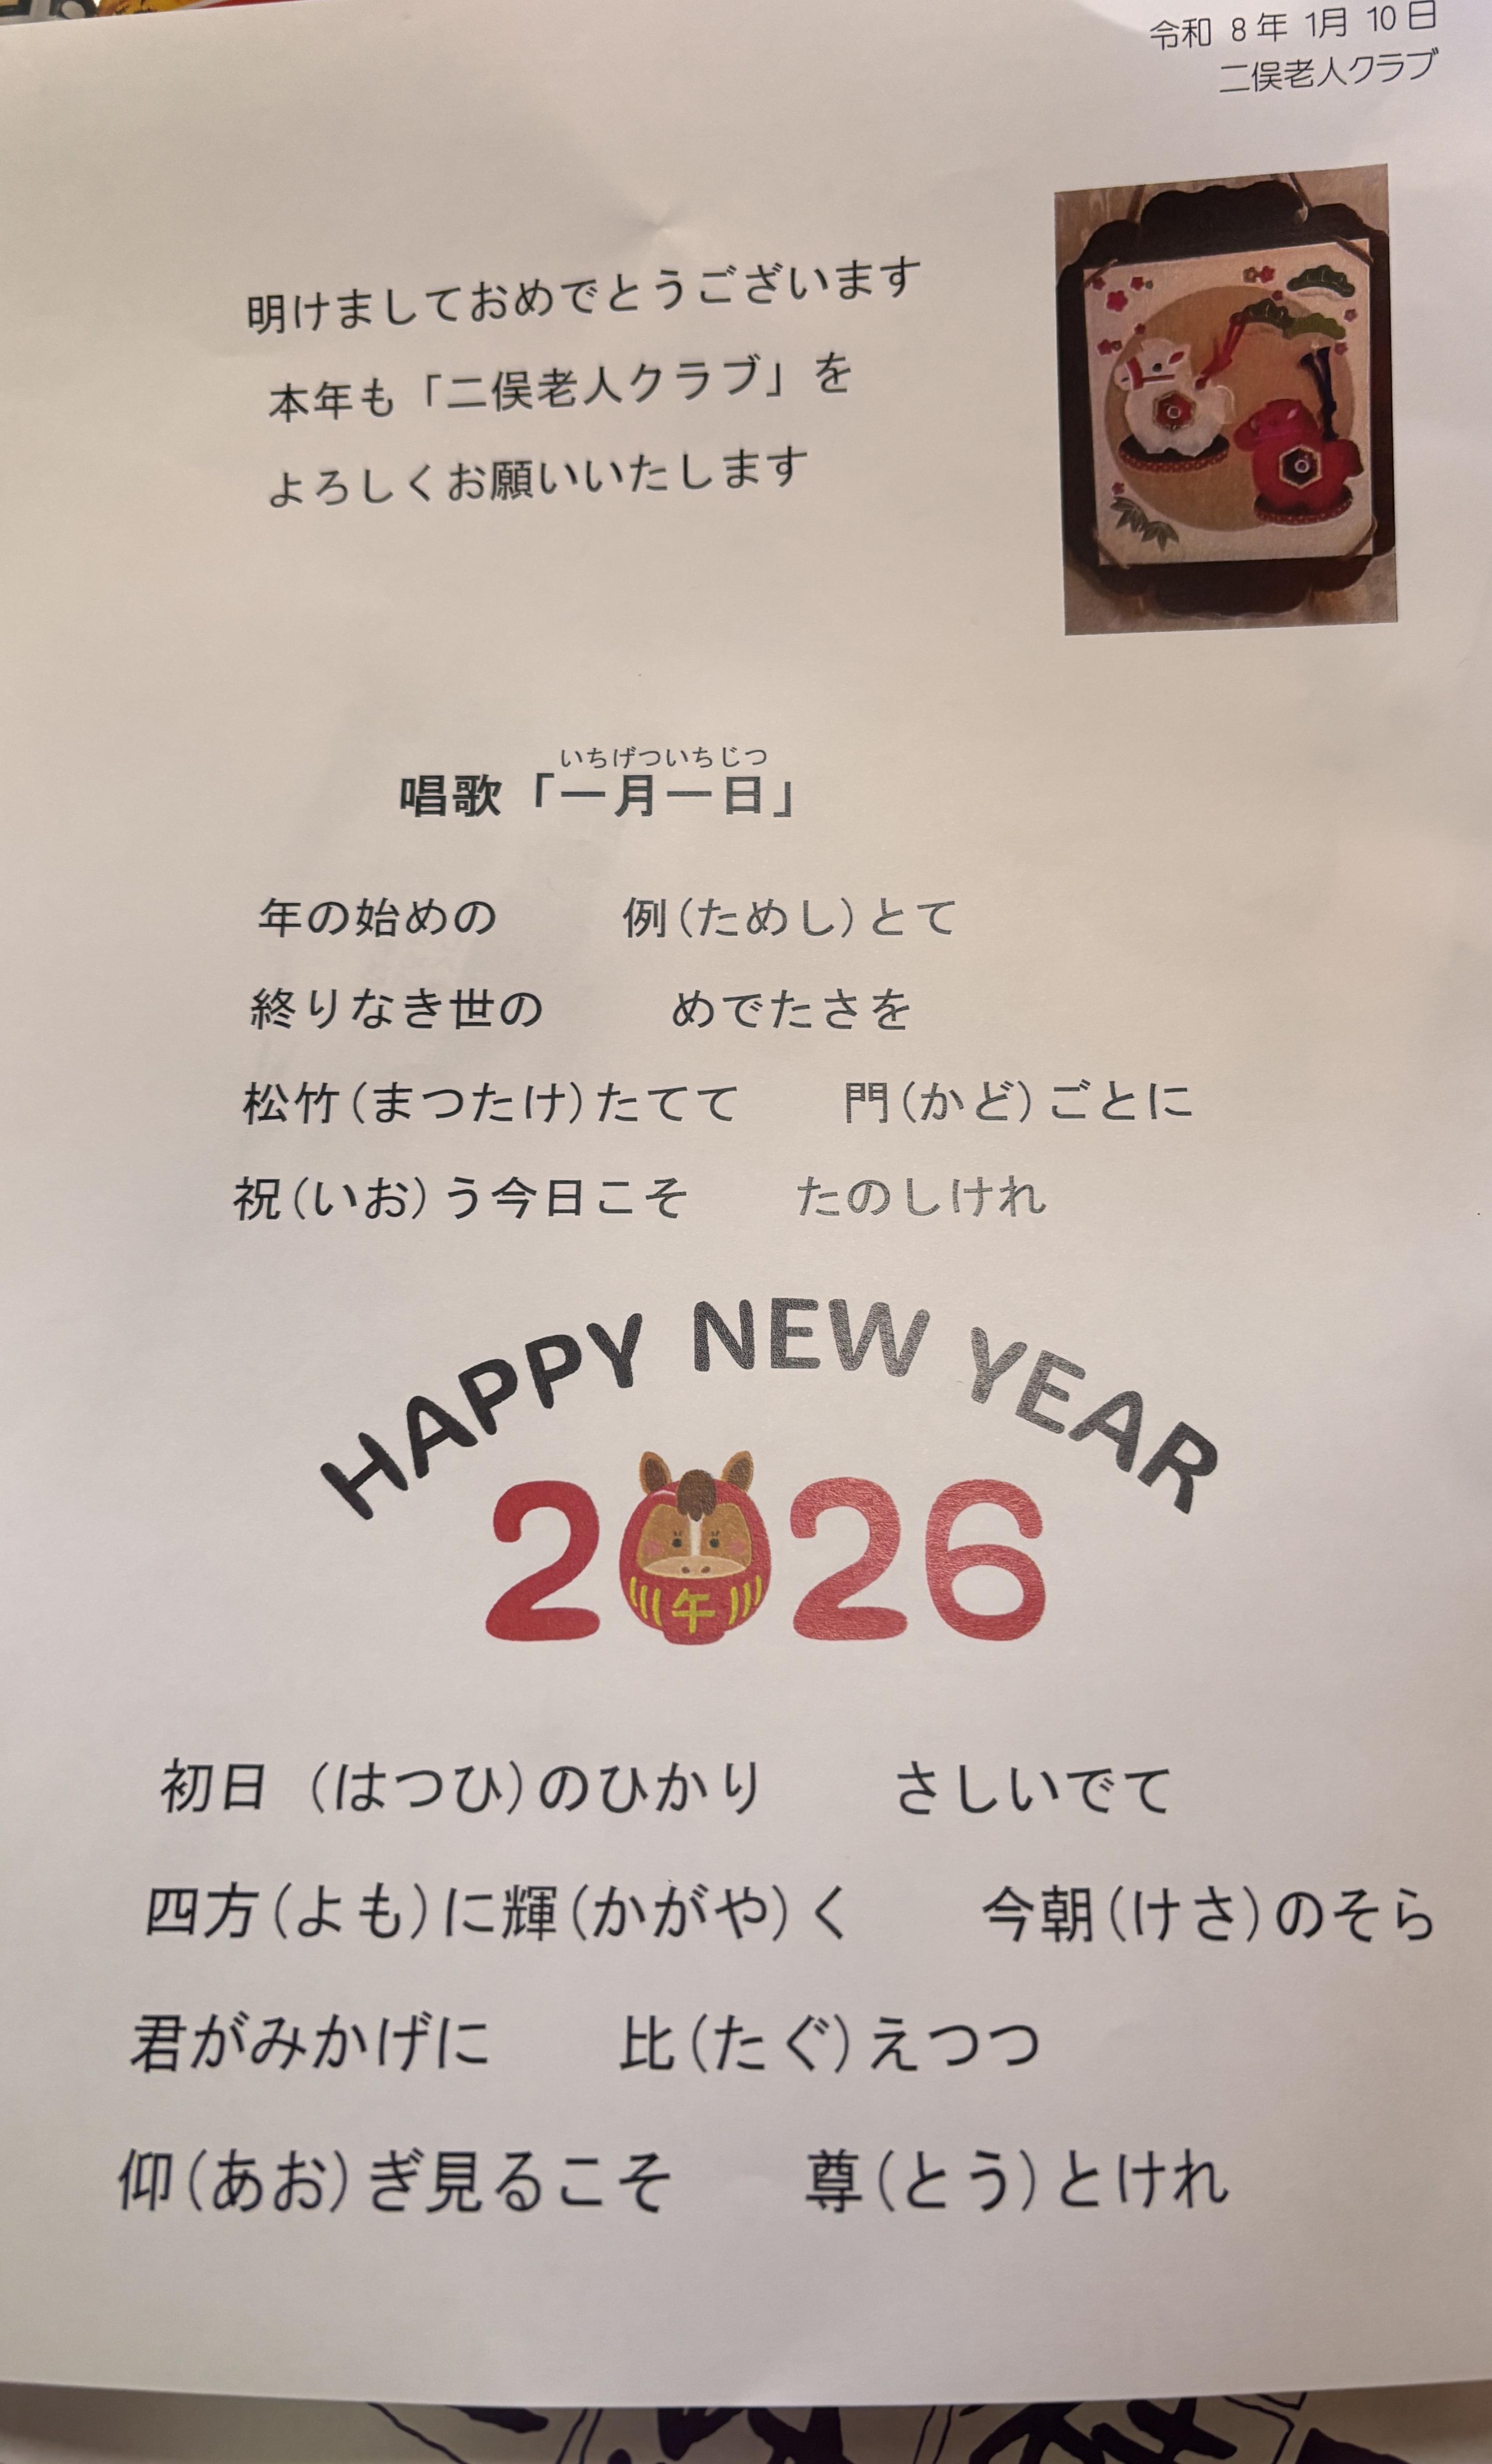 令和 8年 1月 10日
二俣老人クラブ
明けましておめでとうございます
本年も「二俣老人クラブ」を
よろしくお願いいたします
いちげついちじつ
唱歌「一月一日」
年の始めの　　例(ためし)とて
終りなき世の　　めでたさを
松竹(まつたけ)たてて　　門(かど)ごとに
祝(いお)う今日こそ　　たのしけれ
HAPPY NEW YEAR
2026
午
初日 (はつひ)のひかり　　さしいでて
四方(よも)に輝(かがや)く　　今朝(けさ)のそら
君がみかげに　　比(たぐ)えつつ
仰(あお)ぎ見るこそ　　尊(とう)とけれ